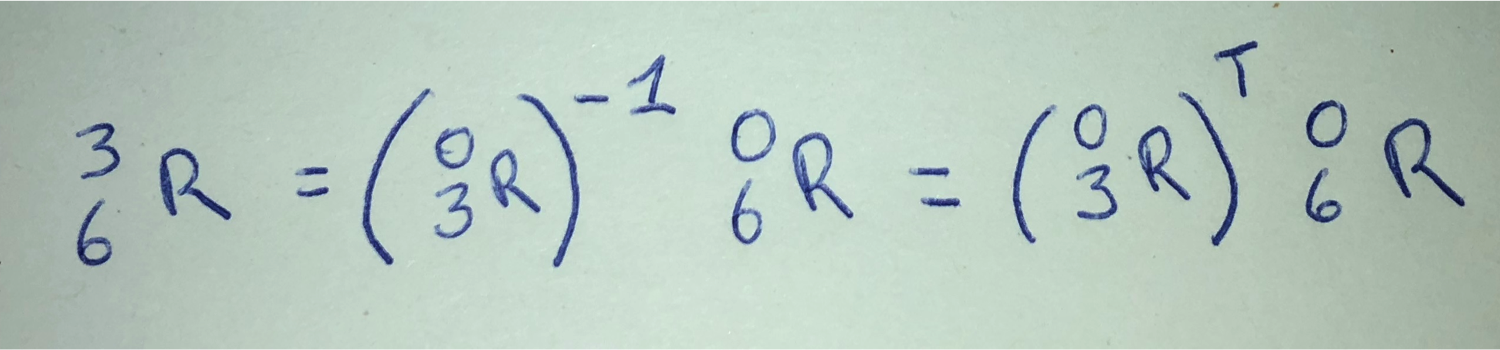 ³₆R = (⁰₃R)⁻¹ ⁰₆R = (⁰₃R)ᵀ ⁰₆R